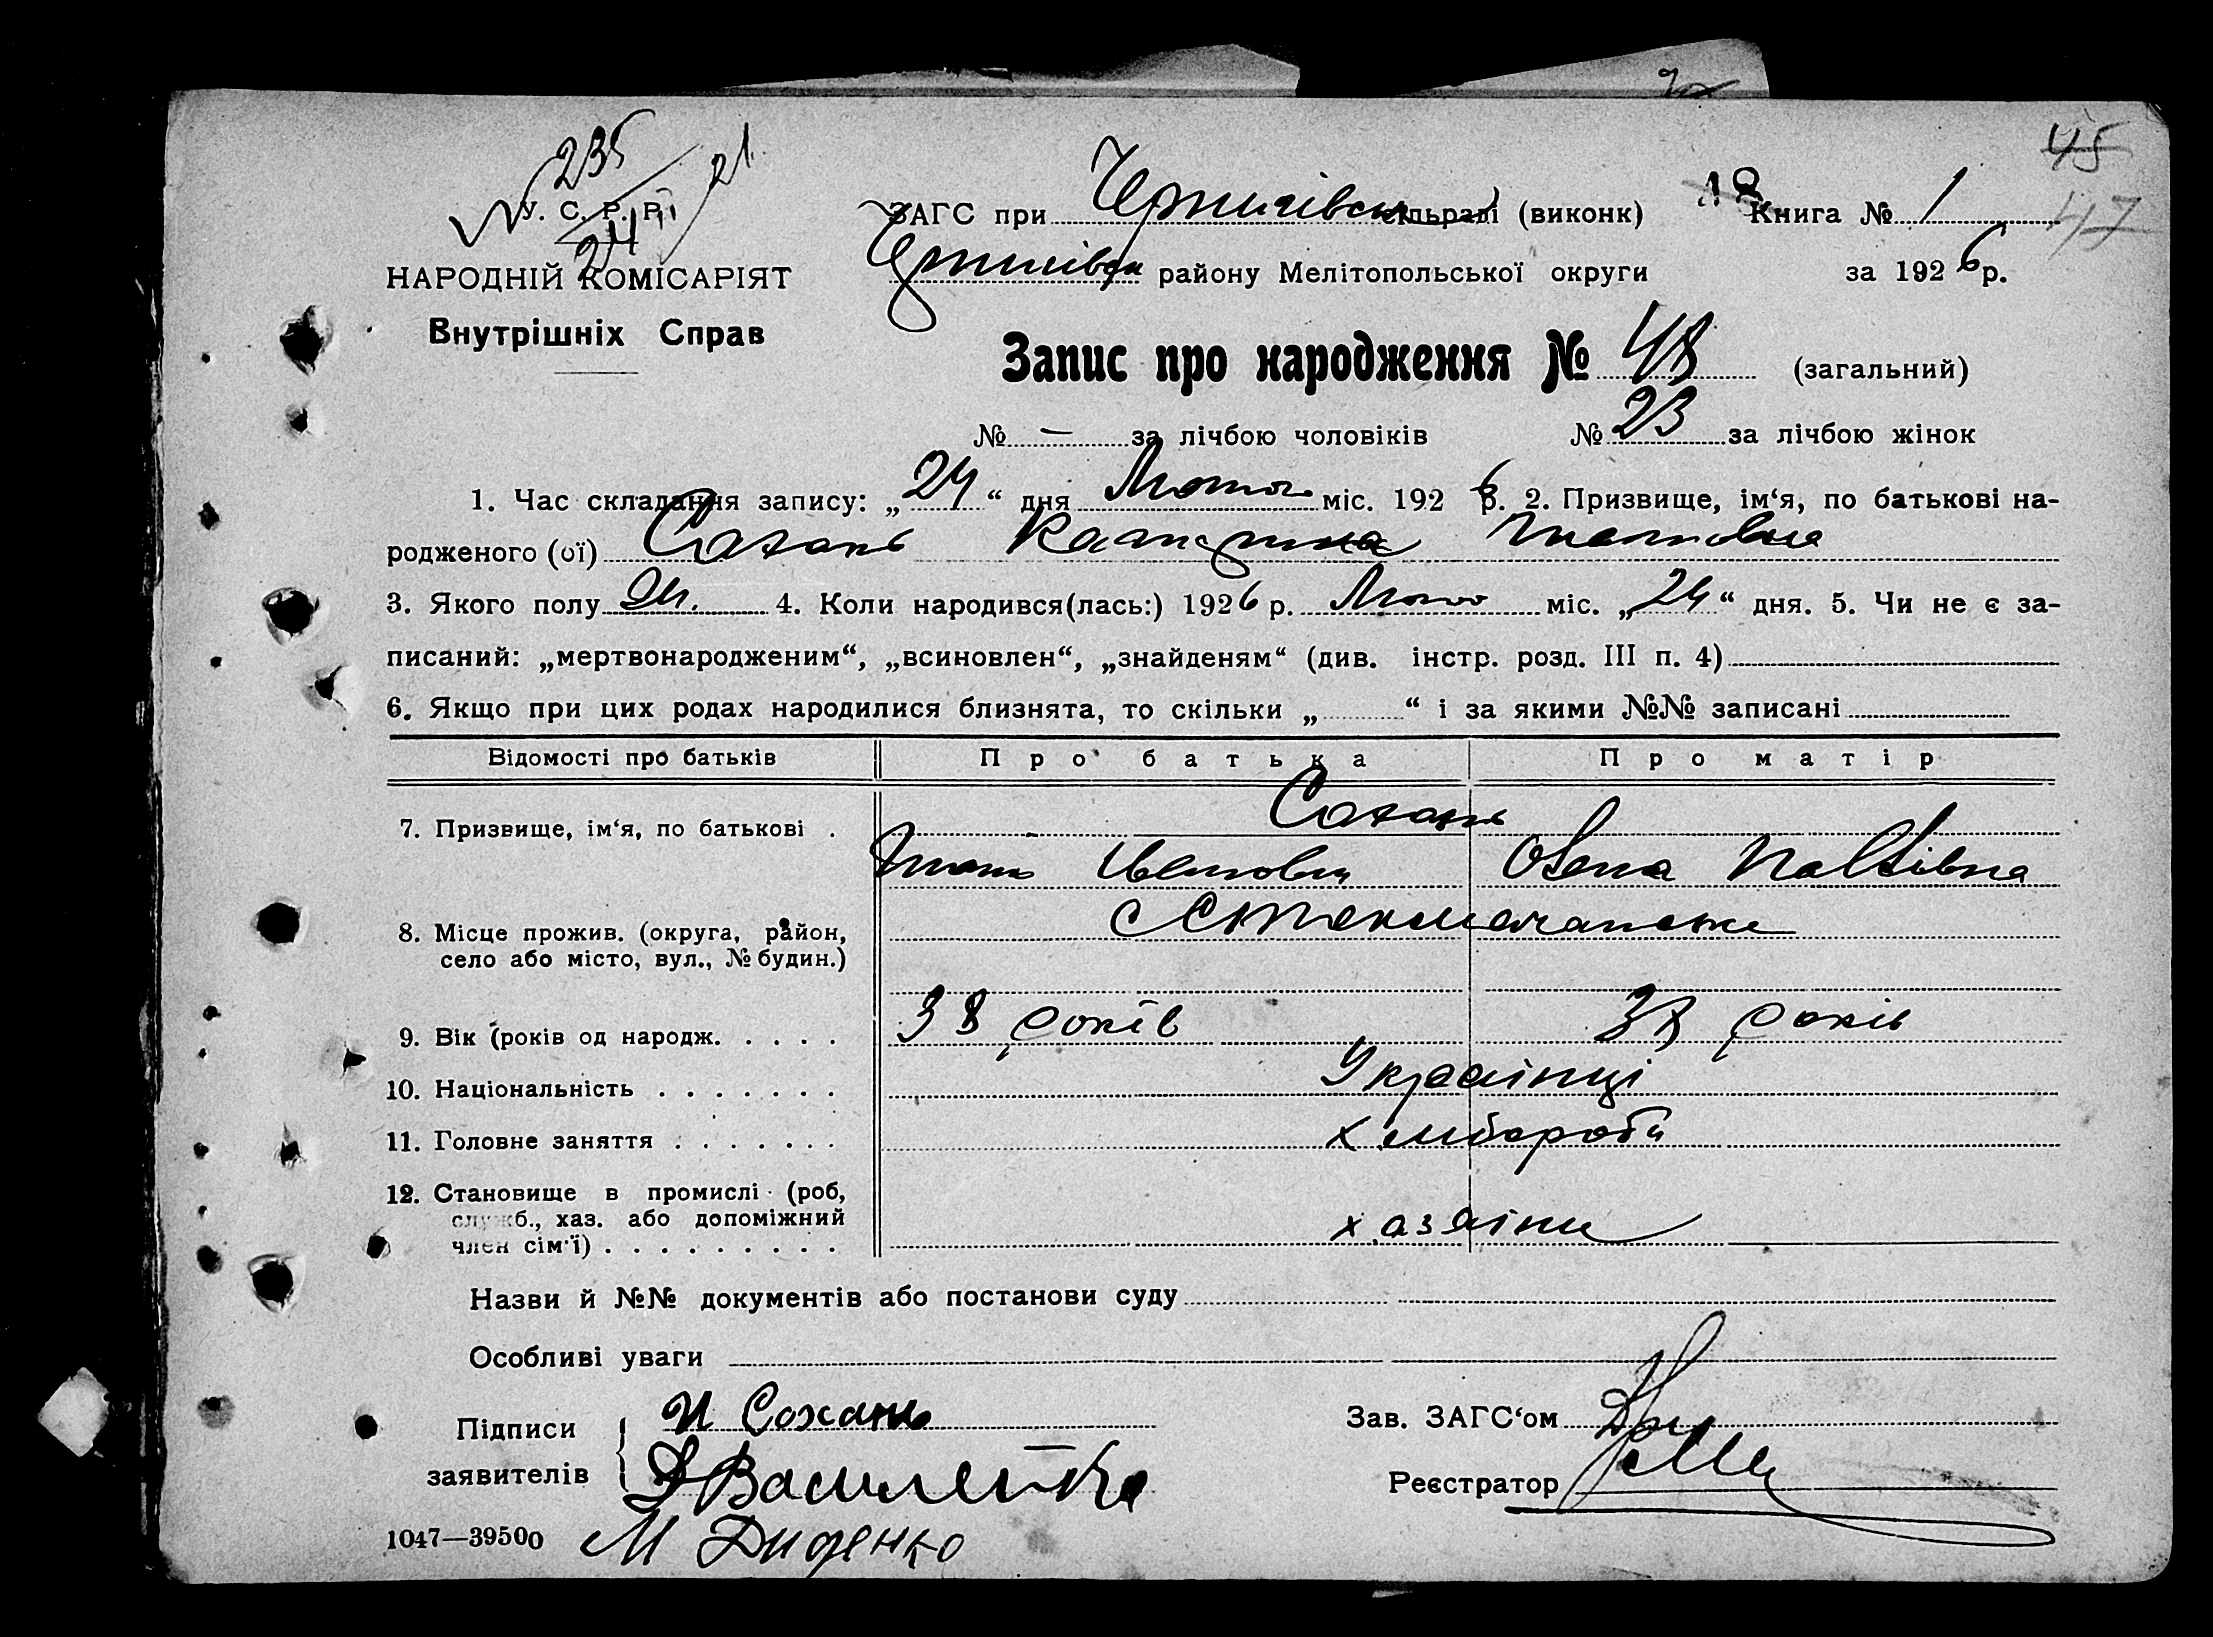 45
235
24
21
У. С. Р. Р.
НАРОДНІЙ КОМІСАРІЯТ
Внутрішніх Справ
ЗАГС при Чернигівськ сільраді (виконк) Книга № 1
47
Чернигівськ району Мелітопольської округи за 1926 р.
Запис про народження № 48 (загальний)
№ — за лічбою чоловіків № 23 за лічбою жінок
1. Час складання запису: „24“ дня Лютого міс. 1926 р. 2. Призвище, ім‘я, по батькові на-
родженого (ої) Сохань Катерина
3. Якого полу 4. Коли народився(лась:) 1926 р. Лютого міс. „24“ дня. 5. Чи не є за-
писаний: „мертвонародженим“, „всиновлен“, „знайденям“ (див. інстр. розд. III п. 4)
6. Якщо при цих родах народилися близнята, то скільки „ “ і за якими №№ записані
Відомості про батьків Про батька Про матір
7. Призвище, ім‘я, по батькові . Сохань
Олена Павлівна
8. Місце прожив. (округа, район,
село або місто, вул., № будин.)
9. Вік (років од народж. . . . . 38 років 38 років
10. Національність . . . . . . . Українці
11. Головне заняття . . . . . . . хлібороби
12. Становище в промислі (роб,
службб., хаз. або допоміжний
член сім‘ї) . . . . . . . . . хазяіни
Назви й №№ документів або постанови суду
Особливі уваги
Підписи заявителів И Сохань
Василенко
М Диденко
Зав. ЗАГС‘ом
Реєстратор
1047—39500